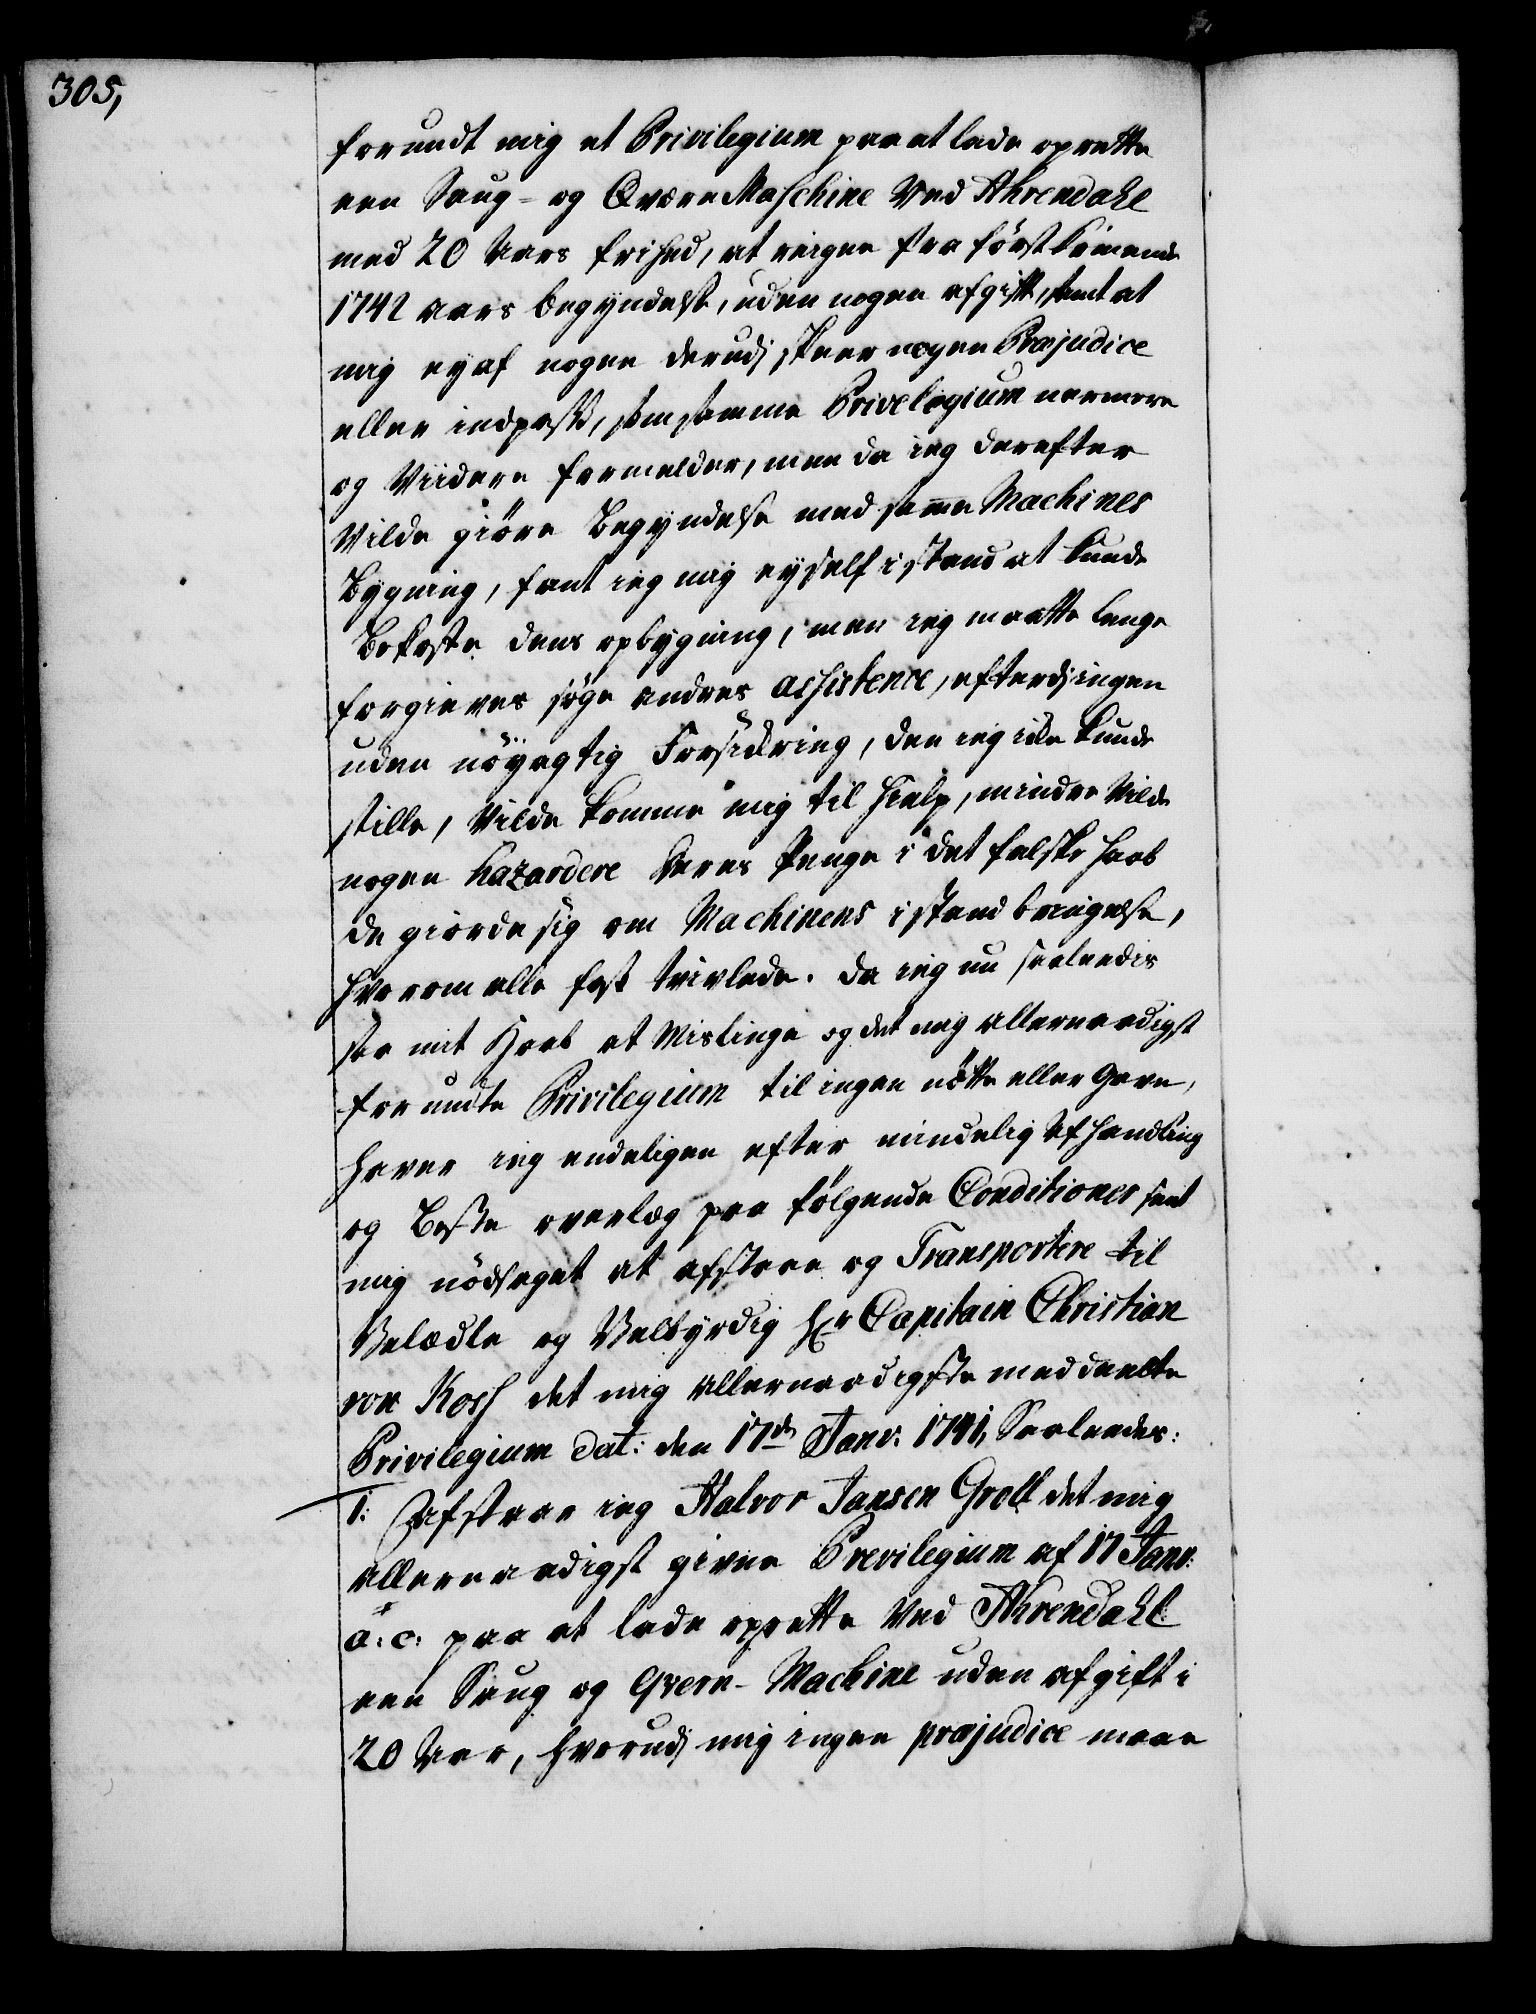 305,
forundt mig et Privilegium paa at lade oprette
een Saug- og Qværn Maschine Ved Ahrendahl
med 20 Aars frihed, at reigne fra först kom̄ende
1742 aars begyndelse, uden nogen afgift, samt at
mig ey af nogen derudj skeer nogen Præjudice
eller indpass, som samme Privelegium nærmere
og Viidere formelder, men da ieg derefter
Vilde giöre Begyndelse med sam̄e Machines
Bygning, fant ieg mig ey self i stand at kunde
Bekoste dens opbygning, men ieg maatte lenge
forgieves söge andres assistence, efterdj ingen
uden nöyagtig Forsickring, den ieg icke kunde
stille, Vilde komme mig til Hielp, mindre Vilde
nogen hazardere deres Penge i det falske Haab
de giorde sig om Machinens istandbringelse,
hvorom alle fast tvivlede. Da ieg nu saaledis
saa mit Haab at Mislinge og det mig allernaadigst
forundte Privilegium til ingen nötte eller Gavn,
haver ieg endeligen efter mindelig Afhandling
og Beste overlæg paa fölgende Conditioner fant
mig nödsaget at afstaae og Transportere til
Velædle og Velbyrdig Hr Capitain Christian
von Koss det mig allernaadigste meddeelte
Privilegium dat: den 17de Janv: 1741, Saaledes:
1: Afstaar ieg Halvor Jansen Groll det mig
allernaadigst givne Previlegium af 17 Janv:
a: c: paa at lade oprette Ved Ahrendahl
een Saug og Qvern-Machine uden afgift i
20 Aar, hvorudj mig ingen præjudice maae